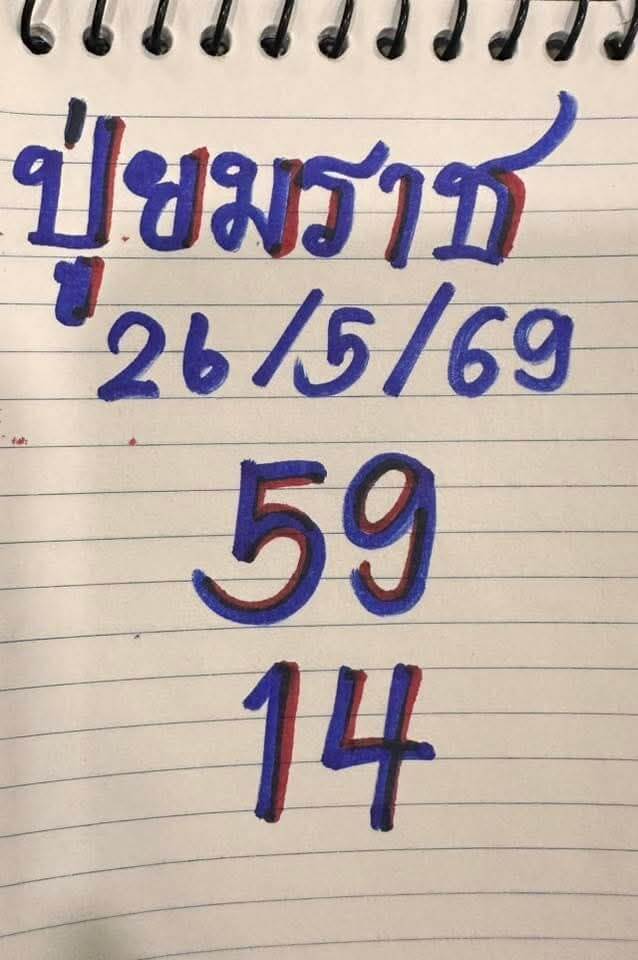 ปู่ยมราช
26/5/69
59
14